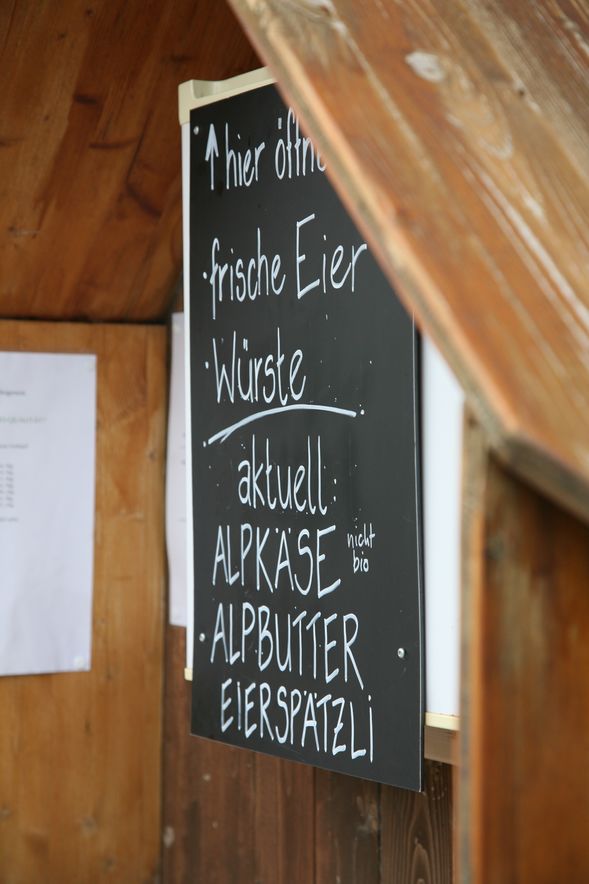 ↑ hier
· frische Eier
· Würste
aktuell:
ALPKÄSE nicht bio
ALPBUTTER
EIERSPÄTZLi